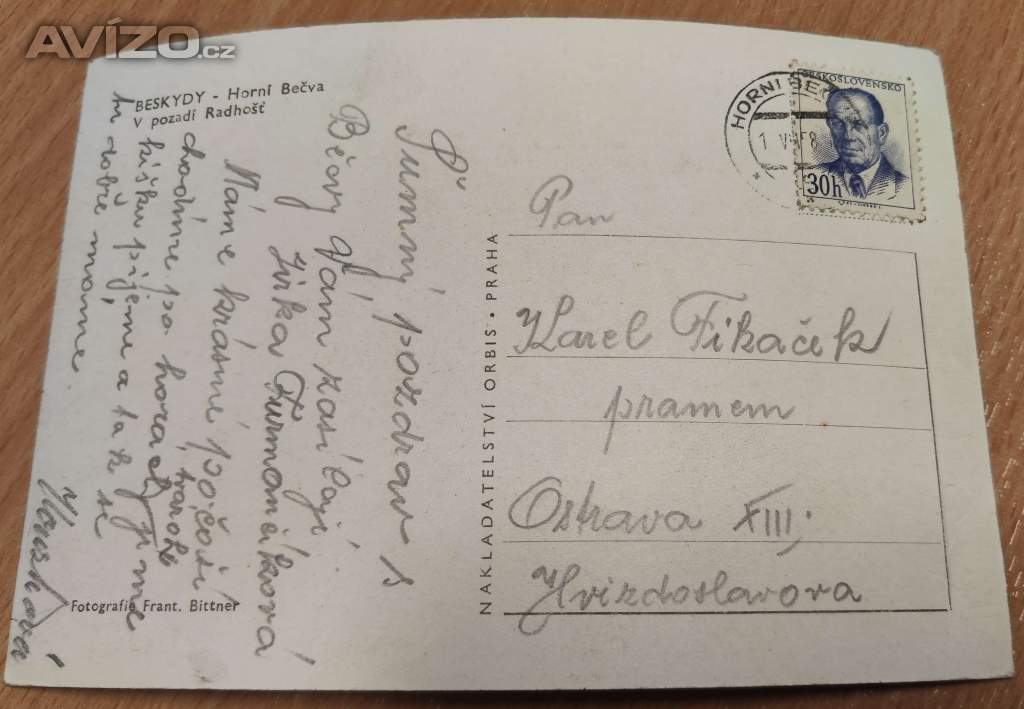 AVÍZO.cz
BESKYDY - Horní Bečva
V pozadí Radhošť
Šumný pozdrav s
Bečvy Vám zasílají
Jirka Furmančíková
Máme krásné počasí
chodíme po horách,
trochu
pijeme a tak se
tu dobře máme.
Fotografie Frant. Bittner
NAKLADATELSTVÍ ORBIS • PRAHA
HORNÍ BEČ
1 VII 58
ČESKOSLOVENSKO
30h
Pan
Karel Fikaček
pramen
Ostrava XIII,
Hvizdoslavova